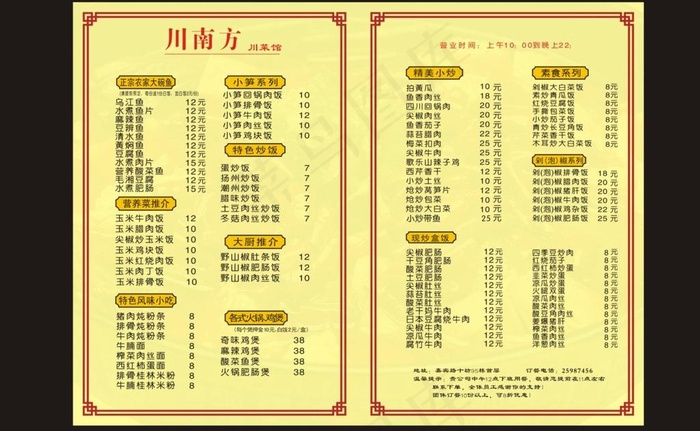 川南方 川菜馆
正宗农家大碗鱼
乌江鱼 12元
水煮鱼片 12元
麻辣鱼 12元
豆辨鱼 12元
清水鱼 12元
黄焖鱼 12元
豆腐鱼 12元
水煮肉片 15元
营养酸菜鱼 12元
毛湘豆腐 12元
水煮肥肠 15元
营养菜推介
玉米牛肉饭 12
玉米腊肉饭 10
尖椒炒玉米饭 10
玉米鸡块饭 10
玉米红烧肉饭 10
玉米肉丁饭 10
玉米排骨饭 10
特色风味小吃
猪肉炖粉条 8
排骨炖粉条 8
牛肉炖粉条 8
牛腩面 8
榨菜肉丝面 8
西红柿蛋面 8
排骨桂林米粉 8
牛腩桂林米粉 8
小笋系列
小笋回锅肉饭 10
小笋排骨饭 10
小笋牛肉饭 12
小笋肉丝饭 10
小笋鸡块饭 10
特色炒饭
蛋炒饭 7
扬州炒饭 7
潮州炒饭 7
腊味炒饭 7
土豆肉丝炒饭 7
冬菇肉丝炒饭 7
大厨推介
野山椒肚条饭 12
野山椒肥肠饭 12
野山椒鱼块饭 10
各式火锅.鸡煲
(每个煲押金10元,白饭2元/盒)
奇味鸡煲 38
麻辣鸡煲 38
酸菜鱼煲 38
火锅肥肠煲 38
营业时间：上午10：00到晚上22:
精美小炒
拍黄瓜 10元
鱼香肉丝 18元
四川回锅肉 20元
尖椒肉丝 20元
鱼香茄子 20元
蒜苔腊肉 22元
梅菜扣肉 25元
尖椒牛肉 25元
歌乐山辣子鸡 25元
西芹香干 12元
小炒土丝 10元
炝炒莴笋片 12元
炝炒包菜 10元
炝炒大白菜 10元
小炒带鱼 25元
素食系列
剁椒大白菜饭 8元
素炒黄瓜饭 8元
红烧豆腐饭 8元
手撕包菜饭 8元
小炒茄子饭 8元
青炒长豆角饭 8元
芹菜香干饭 8元
木耳炒大白菜饭 8元
剁（泡）椒系列
剁(泡)椒排骨饭 18元
剁(泡)椒腊肉饭 20元
剁(泡)椒猪肝饭 20元
剁(泡)椒牛肉饭 22元
剁(泡)椒鸡杂饭 22元
剁(泡)椒肥肠饭 25元
现炒盒饭
尖椒肥肠 12元
干豆角肥肠 12元
酸菜肥肠 12元
土豆肥肠 12元
尖椒肚丝 12元
蒜苔肚丝 12元
酸菜肚丝 12元
老干妈牛肉 12元
日本豆腐烧牛肉 12元
尖椒牛肉 12元
凉瓜牛肉 12元
腐竹牛肉 12元
四季豆炒肉 8元
红烧茄子 8元
西红柿炒蛋 8元
韭菜炒蛋 8元
凉瓜炒蛋 8元
火腿双蛋 8元
凉瓜肉丝 8元
酸菜肉丝 8元
酸豆角肉丝 8元
姜爆猪肝 8元
榨菜肉丝 8元
鱼香肉丝 8元
洋葱肉丝 8元
订餐电话：25987456
温馨提示：贵公司中午12点下班用餐，敬请您提前在11点左右
联系下单，全体员工感谢你的支持！
团体订餐10份以上，可8折优惠！